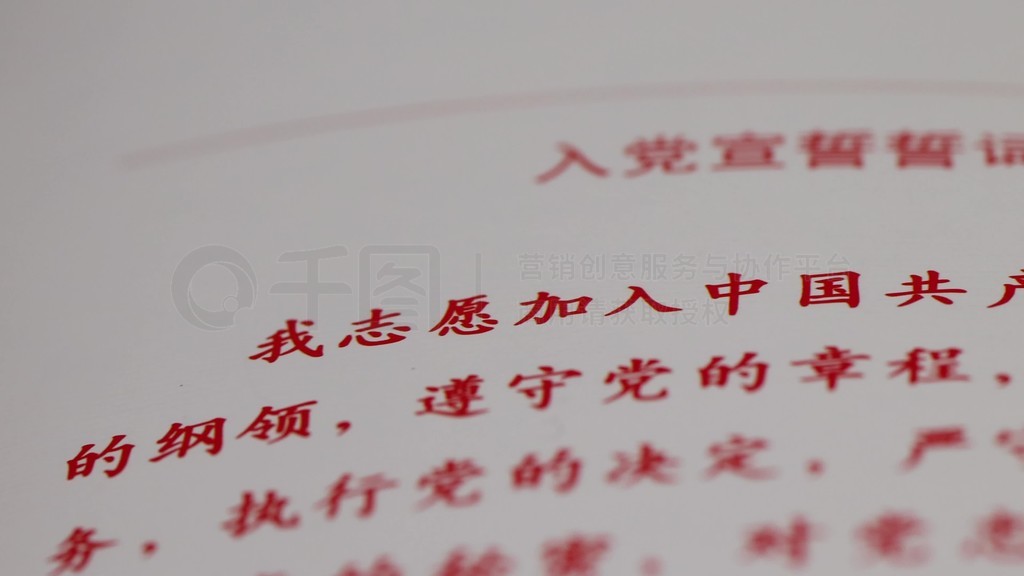 入党宣誓誓词
千图 营销创意服务与协作平台
我志愿加入中国共产
的纲领，遵守党的章程，
务，执行党的决定，严守
秘密，对党忠